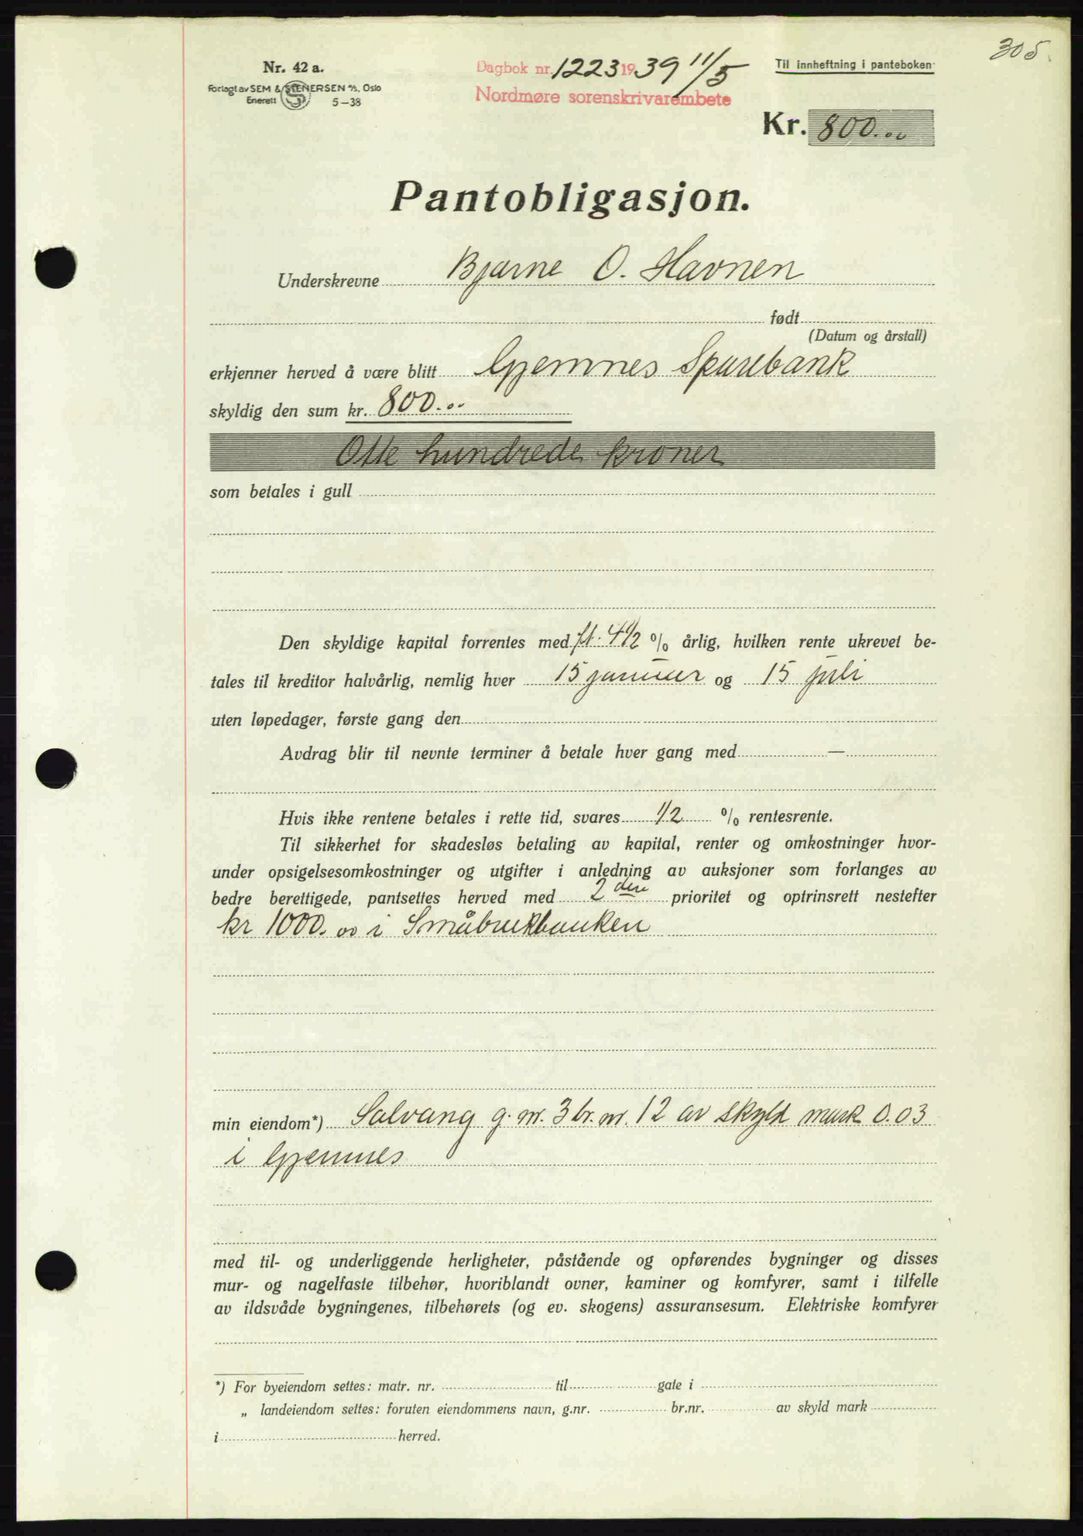 305.
Nr. 42 a.
Forlagt av SEM & STENERSEN A/S, Oslo
Enerett 5-38
Dagbok nr. 1223 1939 11/5
Nordmøre sorenskrivarembete
Til innheftning i panteboken
Kr. 800.00
Pantobligasjon.
Underskrevne Bjarne O. Havnen
født
(Datum og årstall)
erkjenner herved å være blitt Gjemnes Sparebank
skyldig den sum kr. 800.00
Otte hundrede kroner
som betales i gull
Den skyldige kapital forrentes med f.t. 4 1/2 % årlig, hvilken rente ukrevet be-
tales til kreditor halvårlig, nemlig hver 15 januar og 15 juli
uten løpedager, første gang den
Avdrag blir til nevnte terminer å betale hver gang med —
Hvis ikke rentene betales i rette tid, svares 1/2 % rentesrente.
Til sikkerhet for skadesløs betaling av kapital, renter og omkostninger hvor-
under opsigelsesomkostninger og utgifter i anledning av auksjoner som forlanges av
bedre berettigede, pantsettes herved med 2den prioritet og optrinsrett nestefter
kr 1000.00 i Småbrukbanken
min eiendom*) Solvang g. nr. 3 br. nr. 12 av skyld mark 0.03
i Gjemnes
med til- og underliggende herligheter, påstående og opførendes bygninger og disses
mur- og nagelfaste tilbehør, hvoriblandt ovner, kaminer og komfyrer, samt i tilfelle
av ildsvåde bygningenes, tilbehørets (og ev. skogens) assuransesum. Elektriske komfyrer
*) For byeiendom settes: matr. nr. til gate i
„ landeiendom settes: foruten eiendommens navn, g.nr. br.nr. av skyld mark
i herred.